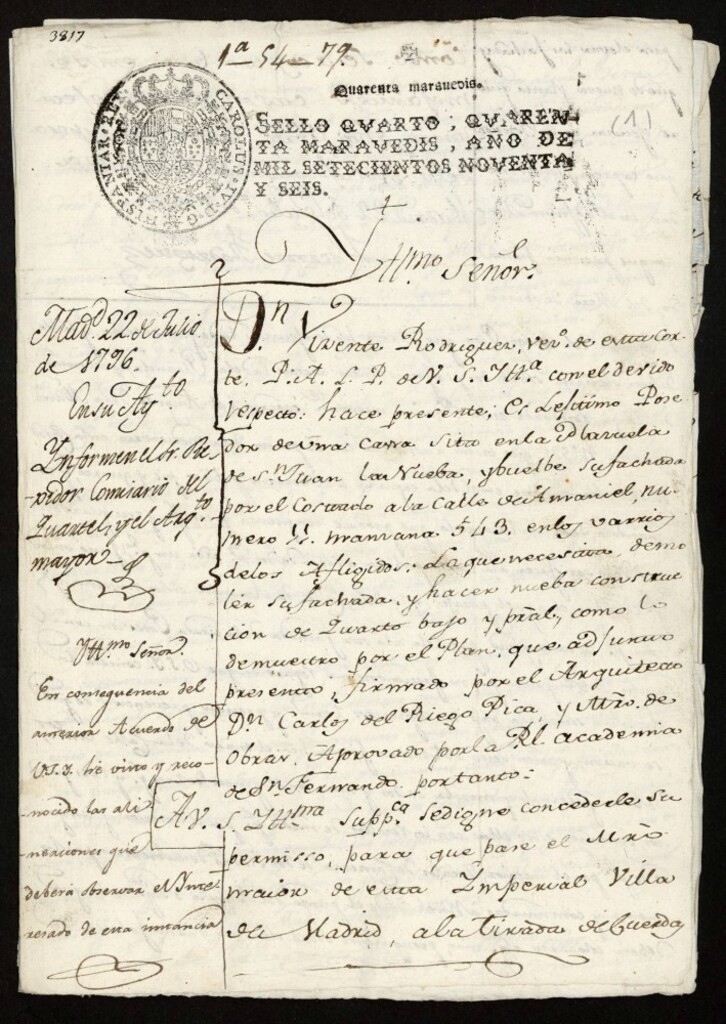 3817
1ª 54-79.
Quarenta maravedis.
(1)
HISPANIAR. REX CAROLUS. IV. D. G.
SELLO QVARTO, QVAREN-
TA MARAVEDIS, AÑO DE
MIL SETECIENTOS NOVENTA
Y SEIS.
Yllmo Señor.
Madd. 22 de Julio
de 1796.
En su Aytto
Ynformen el Sr. Re-
gidor Comisario del
Quartel, y el Arqto
mayor
Dn. Vizente Rodriguez, vezo. de esta Cor-
te, P. A. L. P. de V. S. Yllª. con el devido
respecto: hace presente; Es Lexitimo Pose-
dor de una casa sita en la Plazuela
de Sn. Juan la Nueba, y buelbe su fachada
por el Costado a la Calle de Amaniel, nu-
mero 11. manzana 543. en los varrios
de los Afligidos: La que necesita, demo
ler su fachada, y hacer nueba construc
cion de Quarto bajo y pral, como lo
demuestro por el Plan, que adjunto
presento, firmado por el Arquitecto
Dn. Carlos del Riego Pica, y Mtro. de
Obras, Aprovado por la Rl. academia
de Sn. Fernando, por tanto:
A V. S. Yllma Suppca se digne concederle su
permisso, para que pase el Mro
maior de esta Imperial Villa
de Madrid, a la tirada de Cuerdas
Yllmo Señor.
En consequencia del
anterior Acuerdo de
V.S.Y. he visto y reco-
nocido las ali
neaciones que
deberá observar el Ynte
resado de esta instancia